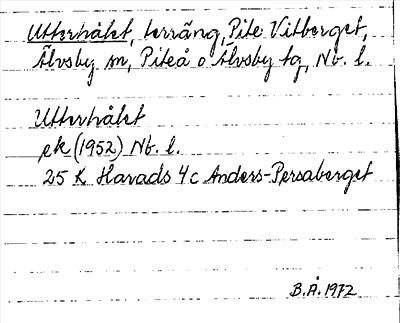 Utterhålet, terräng, Pite Vitberget,
Älvsby sn, Piteå o Älvsby tg, Nb. l.
Utterhålet
ek (1952) Nb. l.
25 K Harads 4 c Anders-Persaberget
B.Å. 1972